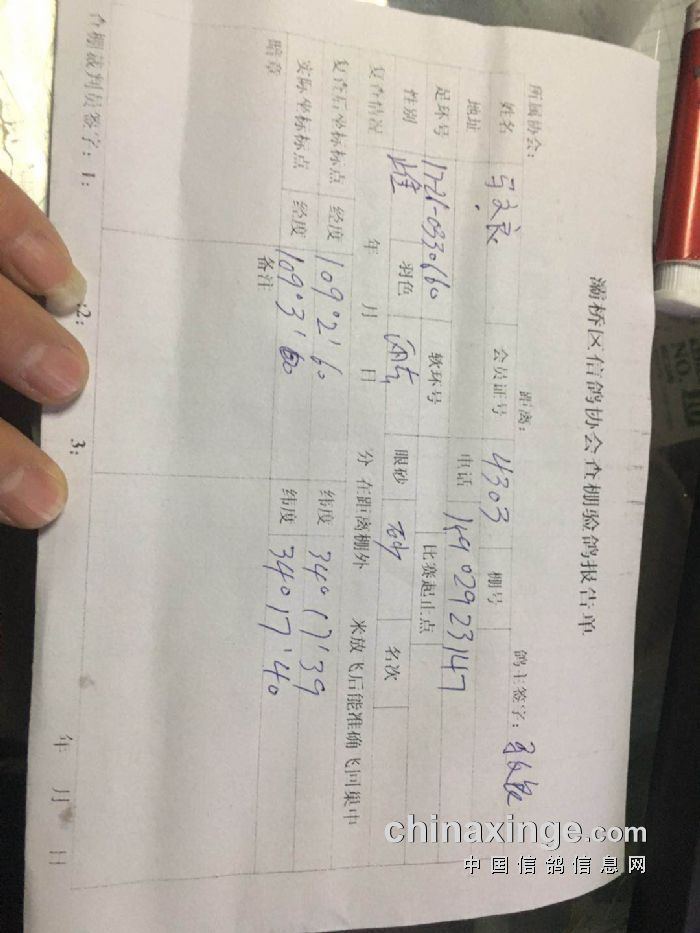 灞桥区信鸽协会查棚验鸽报告单
所属协会: 距离: 鸽主签字:
姓名 会员证号 4303 棚号
地址 电话 14902923147
足环号 17-26-0330660 软环号 比赛起止点
性别 雄 羽色 雨点 眼砂 砂 名次
复查情况 年 月 日 分 在距离棚外 米放飞后能准确飞回巢中
复查后坐标标点 经度 109°2'60 纬度 34°17'39
实际坐标标点 经度 109°3'60 纬度 34°17'40
暗章 备注
查棚裁判员签字: 1: 2: 3: 年 月 日
chinaxinge.com
中国信鸽信息网